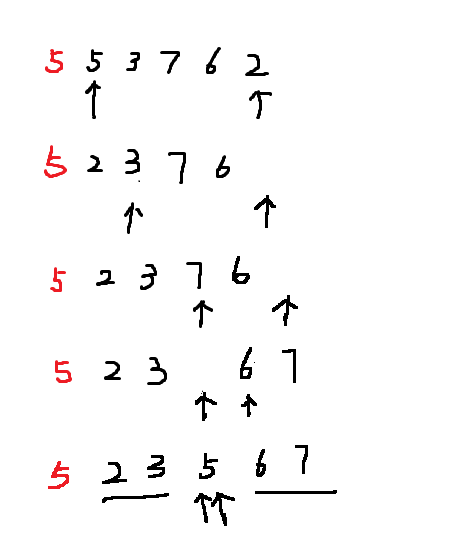 5 5 3 7 6 2
5 2 3 7 6
5 2 3 7 6
5 2 3 6 7
5 2 3 5 6 7